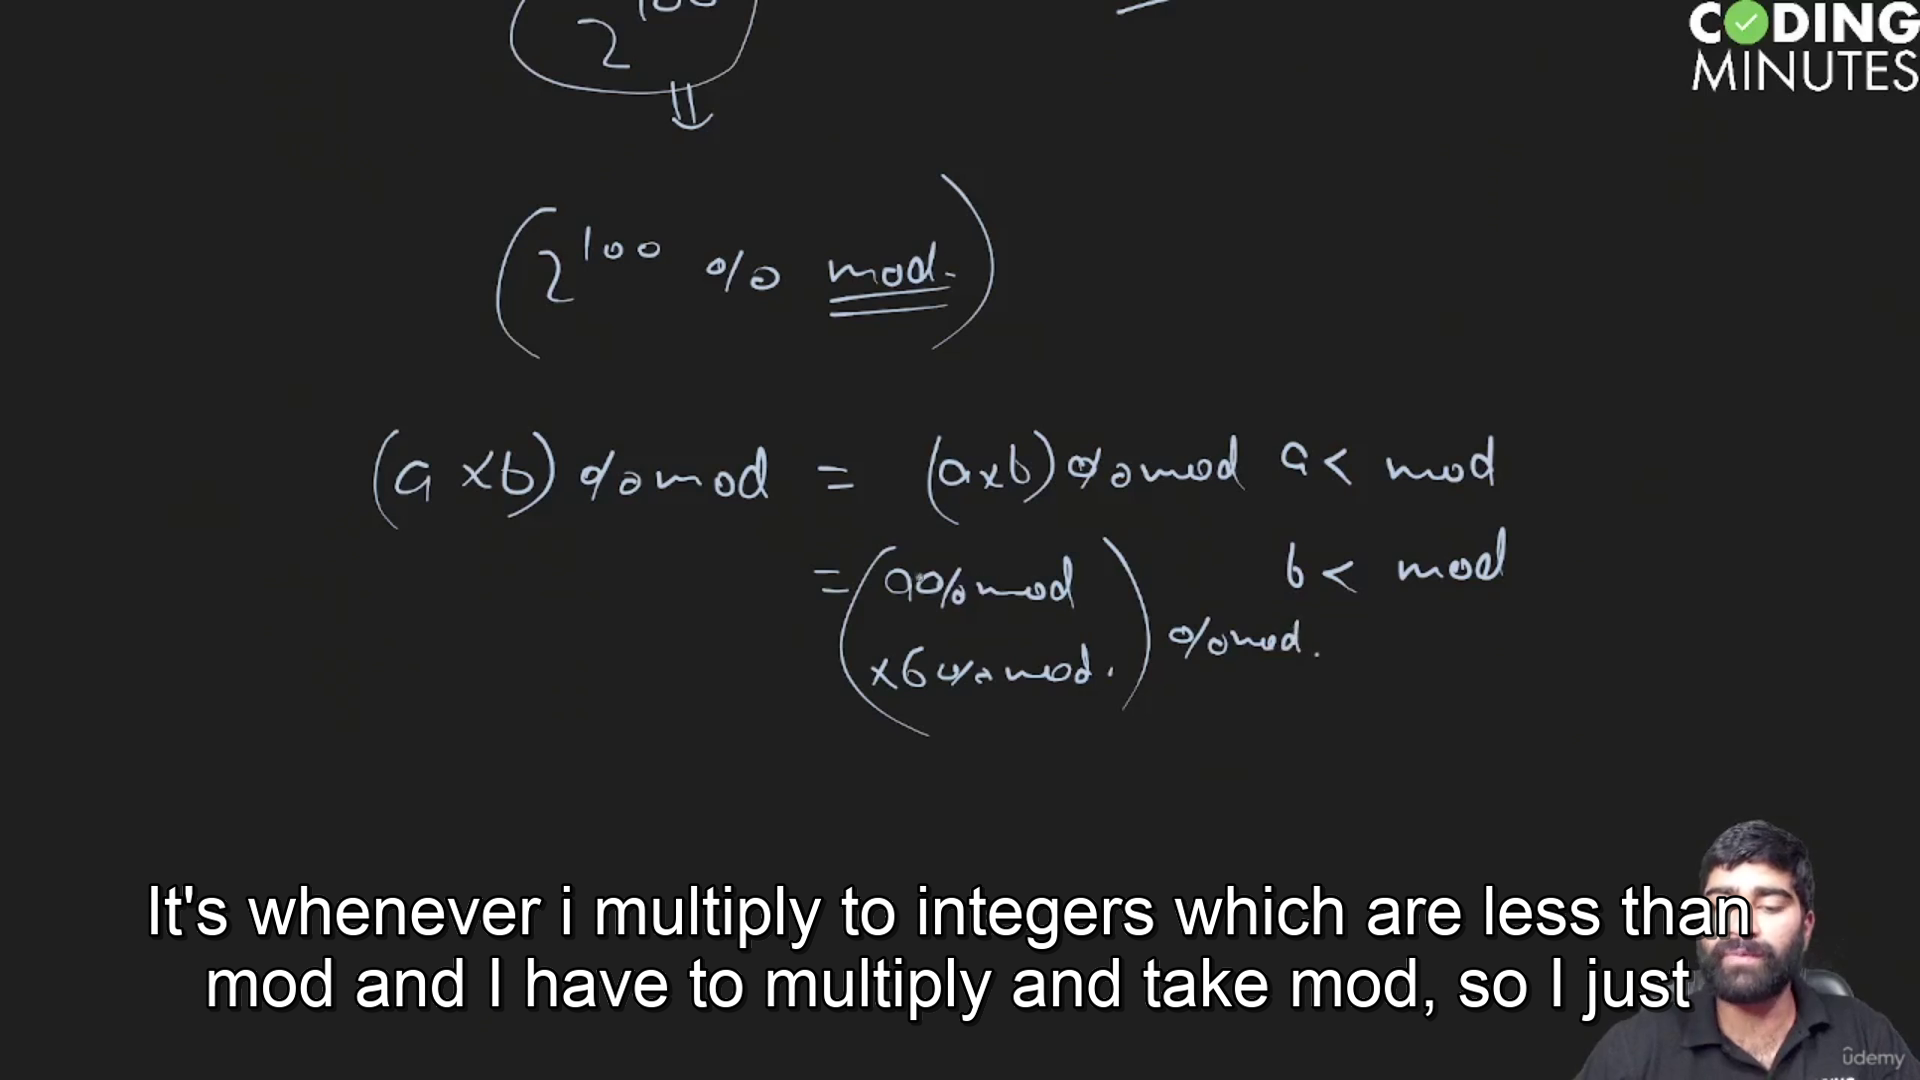 CODING
MINUTES
2^100
(2^100 % mod.)
(a × b) % mod = (a×b) % mod a < mod
= (a % mod b < mod
× b % mod.) % mod.
It's whenever i multiply to integers which are less than
mod and I have to multiply and take mod, so I just
ûdemy